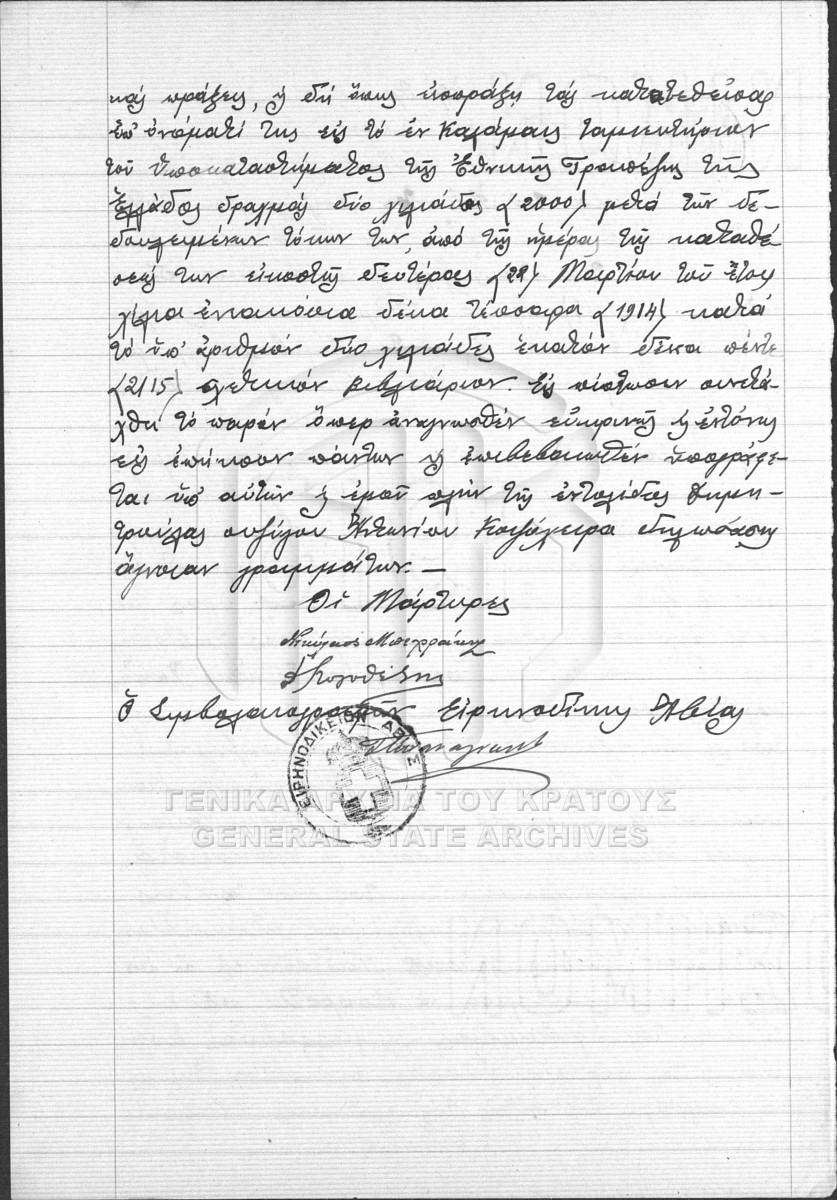 κάς πράξεις, ἤ δή ὅπως εἰσπράξῃ τάς κατατεθείσας
ἐπ' ὀνόματί της εἰς τό ἐν Καλάμαις ταμιευτήριον
τοῦ Ὑποκαταστήματος τῆς Ἐθνικῆς Τραπέζης τῆς
Ἑλλάδος δραχμάς δύο χιλιάδας (2000) μετά τῶν δε-
δουλευμένων τόκων των, ἀπό τῆς ἡμέρας τῆς καταθέ
σεώς των εἰκοστῆς δευτέρας (22) Μαρτίου τοῦ ἔτους
χίλια ἐννακόσια δέκα τέσσαρα (1914) κατά
τό ὑπ' ἀριθμόν δύο χιλιάδες ἑκατόν δέκα πέντε
(2115) σχετικόν βιβλιάριον. Εἰς πίστωσιν συνετά-
χθη τό παρόν ὅπερ ἀναγνωσθέν εὐκρινῶς ἤ ἐντόνως
εἰς ἐπήκοον πάντων ἤ ἐπιβεβαιωθέν ὑπογράφε-
ται ὑπ' αὐτῶν ἤ ἐμοῦ πλήν τῆς ἐντολίδος Δημη-
τρούλας συζύγου Ἀντωνίου δηλωσάσης
ἄγνοιαν γραμμάτων.—
Οἱ Μάρτυρες
Νικόλαος
Ὁ Συμβολαιογραφῶν Εἰρηνοδίκης Ἀβίας
ΕΙΡΗΝΟΔΙΚΕΙΟΝ ΑΒΙΑΣ
ΓΕΝΙΚΑ ΑΡΧΕΙΑ ΤΟΥ ΚΡΑΤΟΥΣ
GENERAL STATE ARCHIVES